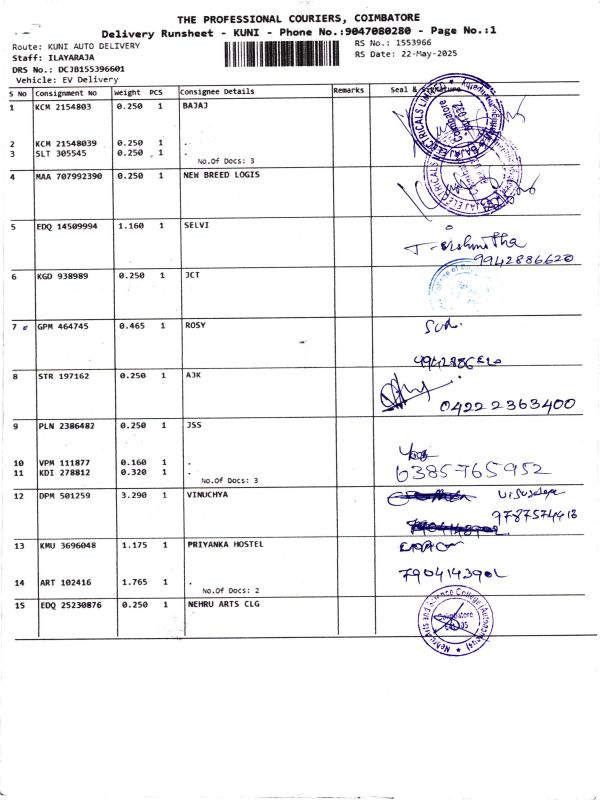 THE PROFESSIONAL COURIERS, COIMBATORE
Delivery Runsheet - KUNI - Phone No.:9047080280 - Page No.:1
Route: KUNI AUTO DELIVERY
RS No.: 1553966
Staff: ILAYARAJA
RS Date: 22-May-2025
DRS No.: DCJB155396601
Vehicle: EV Delivery
S No Consignment No Weight PCS Consignee Details Remarks Seal & Signature
1 KCM 2154803 0.250 1 BAJAJ
2 KCM 21548039 0.250 1 .
3 SLT 305545 0.250 1 .
No.Of Docs: 3
4 MAA 707992390 0.250 1 NEW BREED LOGIS
5 EDQ 14509994 1.160 1 SELVI
9942886620
6 KGD 938989 0.250 1 JCT
7 GPM 464745 0.465 1 ROSY
8 STR 197162 0.250 1 AJK
0422 2363400
9 PLN 2386482 0.250 1 JSS
10 VPM 111877 0.160 1 .
11 KDI 278812 0.320 1 .
6385765952
No.Of Docs: 3
12 DPM 501259 3.290 1 VINUCHYA
13 KMU 3696048 1.175 1 PRIYANKA HOSTEL
7904143902
14 ART 102416 1.765 1 .
No.Of Docs: 2
15 EDQ 25230876 0.250 1 NEHRU ARTS CLG
Nehru Arts and Science College (Autonomous)
Coimbatore